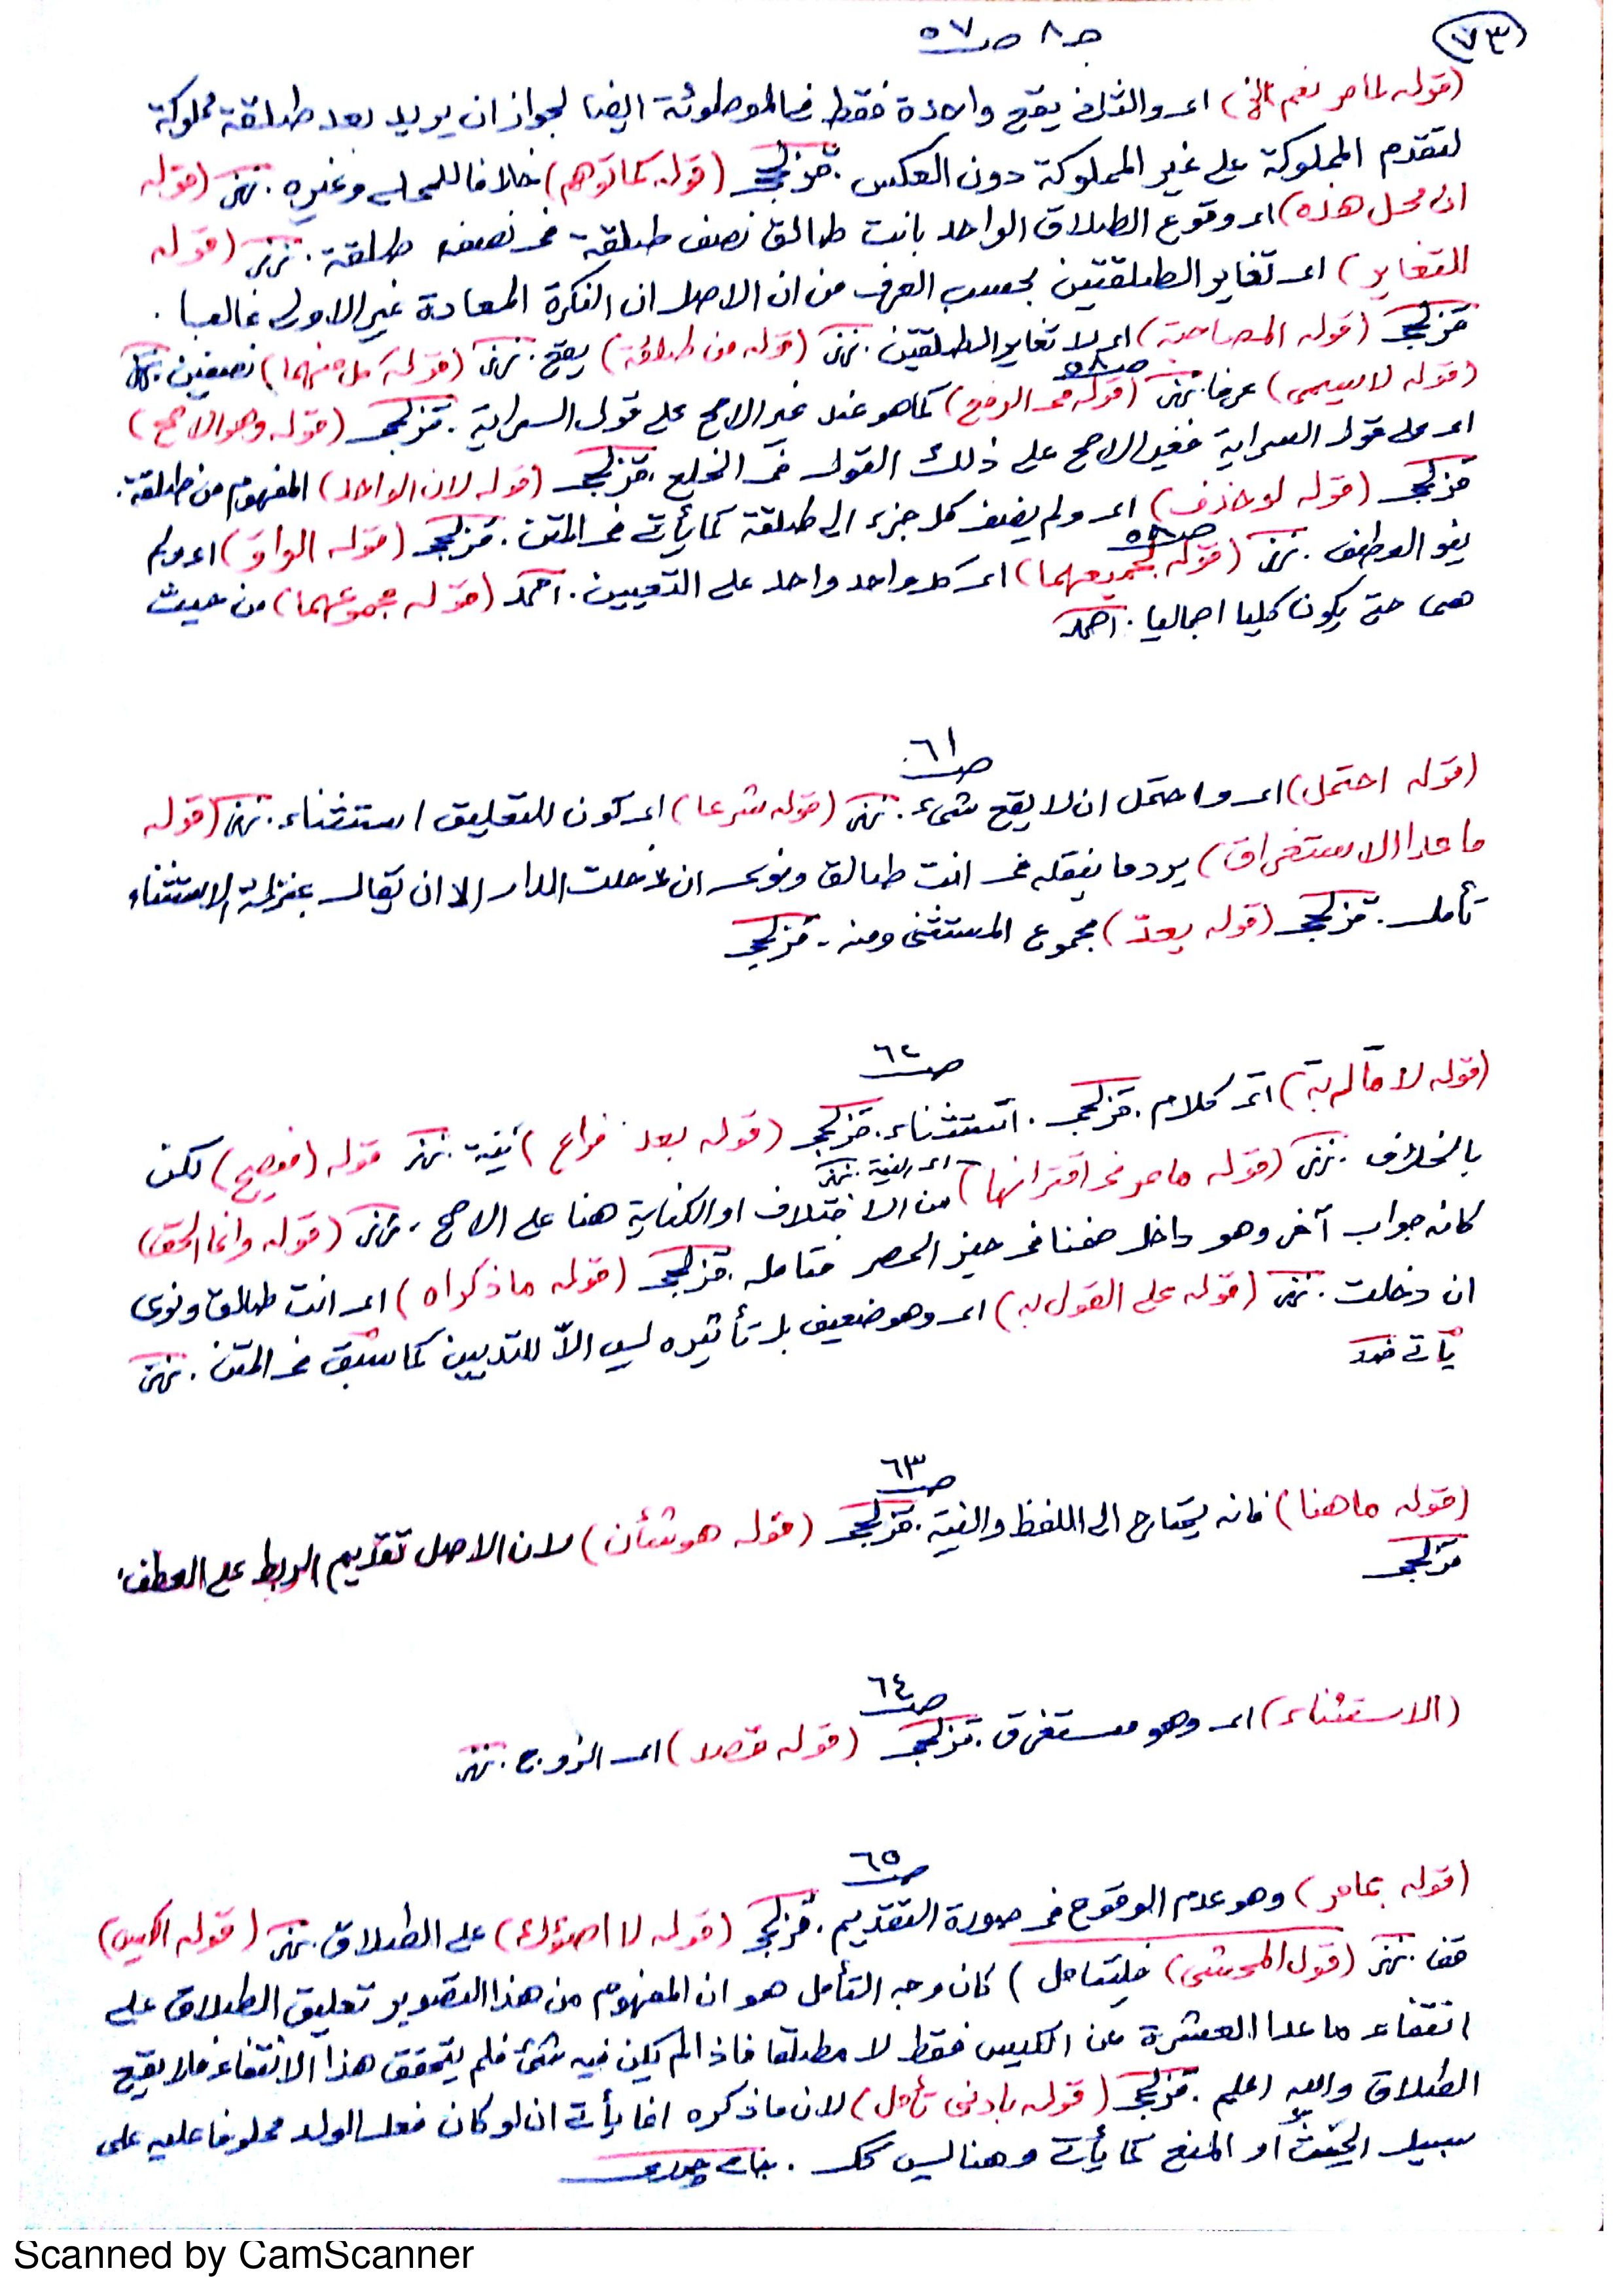 (٧٣)
جـ ٨ صـ ٥٧
(قوله لما مر نعم الخ) اى والثانى يقع واحدة فقط فى الموطوئة ايضا لجواز ان يريد بعد طلقة مملوكة
لتقدم المملوكة على غير المملوكة دون العكس . قزلجى (قوله كما توهم) خلافا للمحلى وغيره . (قوله
ان محل هذه) اى وقوع الطلاق الواحد بانت طالق نصف طلقة فى نصف طلقة . (قوله
التغاير) اى تغاير الطلقتين بحسب العرف من ان الاصل ان النكرة المعادة غير الاولى غالبا .
قزلجى (قوله المصاحبة) اى لا تغاير الطلقتين . (قوله من طلقة) يقع . (قوله كل منهما) نصفين .
صـ ٥٨
(قوله لا يسمى) عرفا . (قوله فى الرفع) كما هو عند غير الاصح على قول السراية . قزلجى (قوله وهو الاصح)
اى على قول السراية فغير الاصح على ذلك القول فى الخلع . قزلجى (قوله لان الواحد) المفهوم من طلقة .
قزلجى (قوله لو حذف) اى ولم يضف كل جزء الى طلقة كما يأتى فى المتن . قزلجى (قوله الواو) اى ولم
صـ ٥٨
ينو العطف . (قوله لجميعهما) اى كل واحد واحد على التعيين . احمد (قوله مجموعهما) من حيث
هى حتى يكونا كليا اجماليا . احمد
صـ ٦١
(قوله احتمل) اى واحتمل ان لا يقع شىء . (قوله شرعا) اى كون التعليق استثناء . (قوله
ما عدا الاستغراق) يرد ما ينقله فى انت طالق ونوى ان دخلت الدار الا ان يقال بمنزلة الاستثناء
تأمل . قزلجى (قوله يعدّ) مجموع المستثنى ومنه . قزلجى
صـ ٦٢
اى كلام . قزلجى . استثناء . قزلجى (قوله بعد فراغ) نية . قوله (فصيح) لكن
بالخلاف . (قوله ما مر فى اقترانها) من الاختلاف او الكناية هنا على الاصح . (قوله وانما الحق)
اى النية .
كانه جواب آخر وهو داخل ضمنا فى حيز الحصر فتامله . قزلجى (قوله ما ذكراه) اى انت طالق ونوى
ان دخلت . (قوله على القول به) اى وهو ضعيف بل تأثيره ليس الاّ للتديين كما سبق فى المتن .
يأتى
صـ ٦٣
(قوله ما هنا) فانه يحتاج الى اللفظ والنية . قزلجى (قوله هو شأن) لان الاصل تقديم الربط على العطف .
قزلجى
صـ ٦٤
(الاستثناء) اى وهو مستغرق . قزلجى (قوله قصد) اى الزوج .
صـ ٦٥
(قوله بما مر) وهو عدم الوقوع فى صورة التقديم . قزلجى (قوله لا اصؤلك) على الطلاق . (قوله الكيس)
(قول المحشى) فليتامل) كان وجه التأمل هو ان المفهوم من هذا التصوير تعليق الطلاق على
انتفاء ما عدا العشرة عن الكيس فقط لا مطلقا فاذا لم يكن فيه شئ فلم يتحقق هذا الانتفاء فلا يقع
الطلاق والله اعلم . قزلجى (قوله بادنى تأمل) لان ما ذكره انما يأتى ان لو كان فعل الولد محلوفا عليه على
سبيل الحثّ او المنع كما يأتى وهنا ليس كك .
Scanned by CamScanner